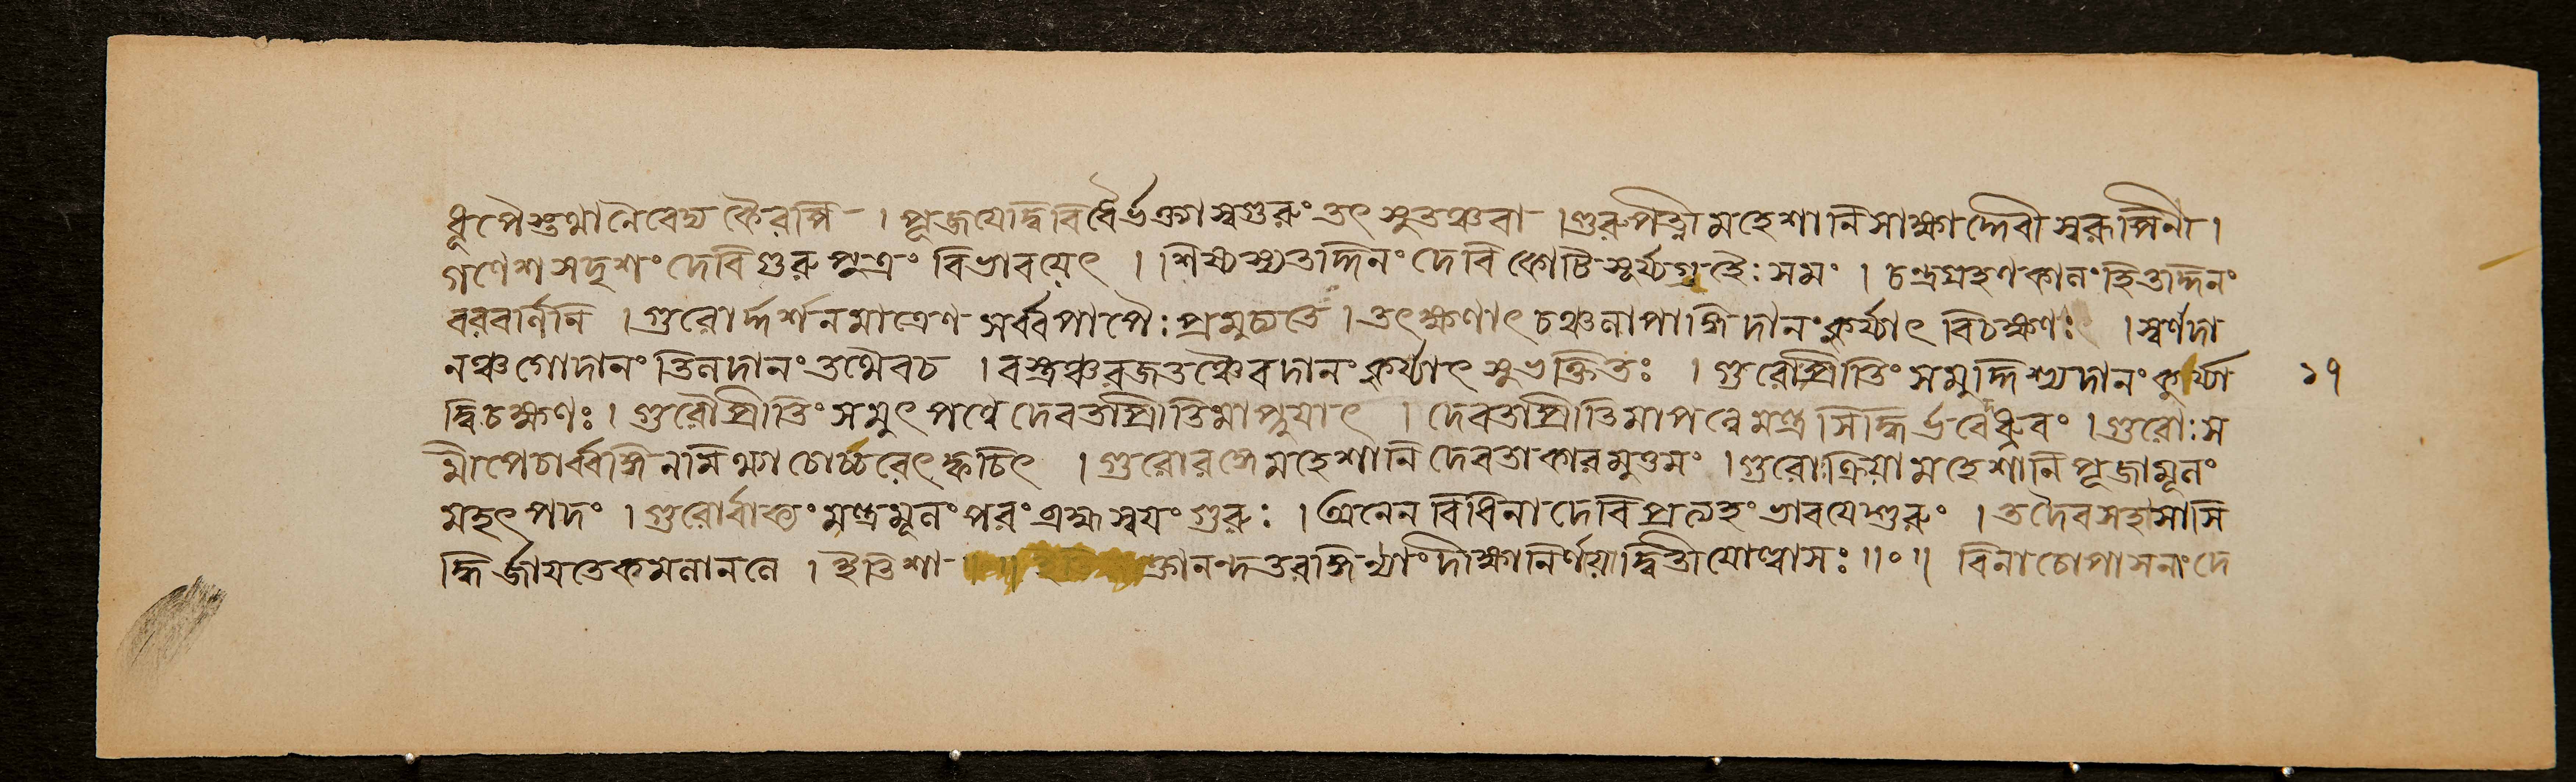 ধূপৈস্তথা নৈবেদ্যকৈরপি । পূজয়েদ্বিবিধৈর্ভক্ত্যা স্বগুরুং তৎসুতঞ্চ বা । গুরুপত্নী মহেশানি সাক্ষাদ্দেবী স্বরূপিনী ।
গণেশসদৃশং দেবি গুরুপুত্রং বিভাবয়েৎ । । শিষ্যস্য তদ্দিনং দেবি কোটিসূর্য্যগ্রহৈঃ সমং । চন্দ্রগ্রহণকালং হি তদ্দিনং
বরবর্ণিনি । গুরোর্দ্দর্শনমাত্রেণ সর্ব্বপাপৈঃ প্রমুচ্যতে । তৎক্ষণাৎ চঞ্চলাপাঙ্গি দানং কুর্য্যাৎ বিচক্ষণঃ । স্বর্ণদা
নঞ্চ গোদানং তিলদানং তথৈব চ । বস্ত্রঞ্চ রজতঞ্চৈব দানং কুর্য্যাৎ সুভক্তিতঃ । গুরোপ্রীতিং সমুদ্দিশ্য দানং কুর্য্যা ১৭
দ্বিচক্ষণঃ । গুরৌ প্রীতিং সমুৎপন্নে দেবতাপ্রীতিমাপ্নুয়াৎ । দেবতাপ্রীতিমাপন্নে মন্ত্রসিদ্ধির্ভবেদ্ধ্রুবং । গুরোঃ স
মীপে চার্ব্বঙ্গি নমিথ্যা চোচ্চরেৎ ক্বচিৎ । গুরোরঙ্গে মহেশানি দেবতাকারমুত্তমং । গুরোঃ ক্রিয়া মহেশানি পূজামূলং
মহৎপদং । গুরোর্ব্বাক্যং মন্ত্রমূলং পরংব্রহ্ম স্বয়ং গুরুঃ । অনেন বিধিনা দেবি প্রত্যহং ভাবয়েদ্গুরুং । তদৈব সহসা সি
দ্ধির্জায়তে কমলাননে । ইতি শাক্তানন্দতরঙ্গিণ্যাং দীক্ষানির্ণয়ো দ্বিতীয়োল্লাসঃ ॥০॥ বিনা চোপাসনাং দে